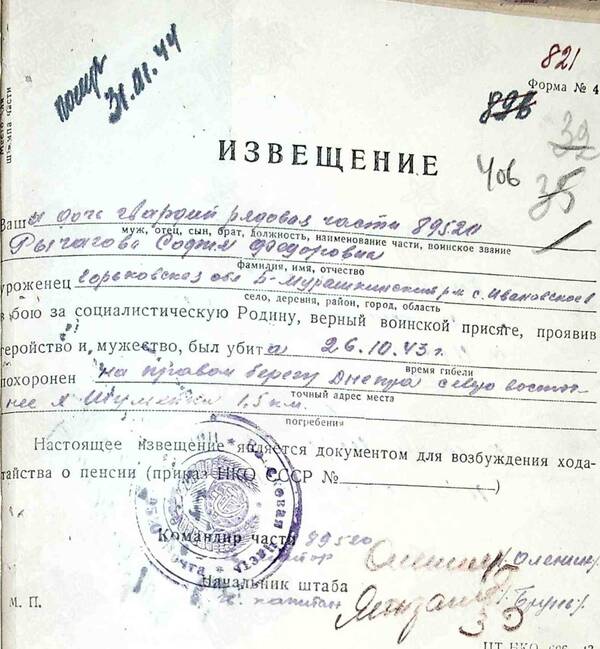 821
Форма № 4
31.01.44
896
32
406
35
ИЗВЕЩЕНИЕ
Ваша дочь гвардии рядовая части 89520
муж, отец, сын, брат, должность, наименование части, воинское звание
Рычагова София Федоровна
фамилия, имя, отчество
уроженец Горьковской обл Б-Мурашкинский р-н с. Ивановское
село, деревня, район, город, область
в бою за социалистическую Родину, верный воинской присяге, проявив
геройство и мужество, был убита 26.10.43 г.
время гибели
похоронен на правом берегу Днепра северо восточ-
точный адрес места
нее 1,5 км.
погребения
Настоящее извещение является документом для возбуждения хода-
тайства о пенсии (приказ НКО СССР № )
Командир части 89520
майор
Начальник штаба
капитан
М. П.